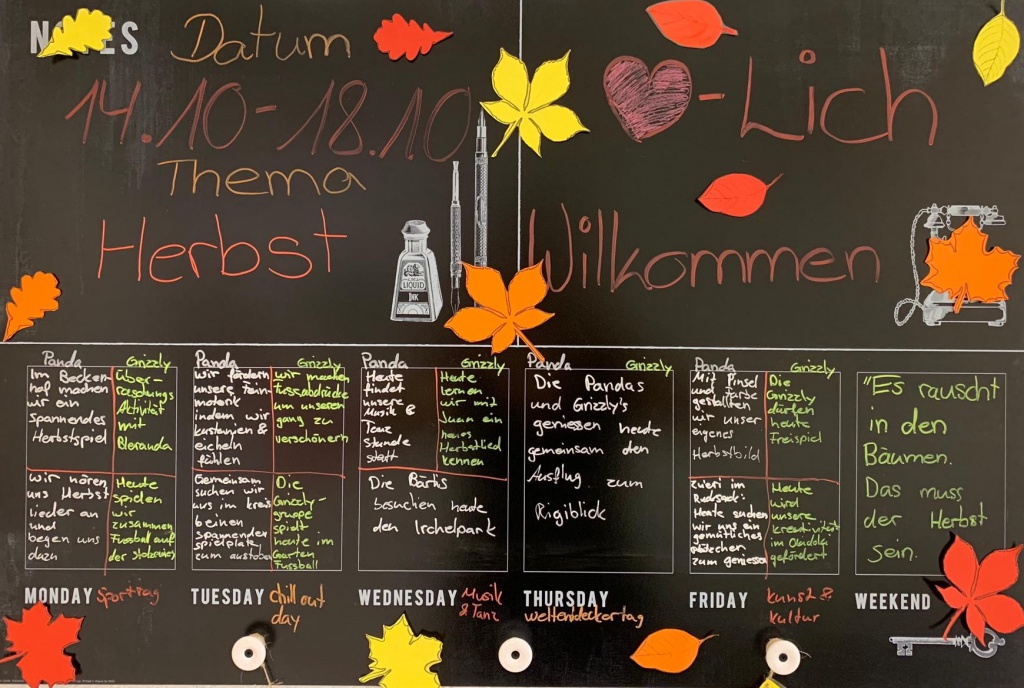 NOTES
Datum
14.10-18.10
Thema
Herbst
LIQUID
INK
-Lich
Willkommen
Panda
Im Becken-
hof machen
wir ein
spannendes
Herbstspiel
Grizzly
Über-
raschungs
Aktivität
mit
Bleranda
wir hören
uns Herbst
lieder an
und
begen uns
dazu
Heute
spielen
wir
zusammen
Fussball auf
der stolzewies
MONDAY sporttag
Panda
wir fördern
unsere Fein-
motorik
indem wir
kastanien &
eicheln
fühlen
Grizzly
wir machen
Fussabdrücke
um unseren
gang zu
verschönern
Gemeinsam
suchen wir
uns im kreis
beinen
spannenden
spielplatz
zum austoben
Die
Grizzly-
gruppe
spielt
heute im
Garten
Fussball
TUESDAY chill out
day
Panda
Heute
findet
unsere
Musik &
Tanz
Stunde
statt
Grizzly
Heute
lernen
wir mit
Juan ein
neues
Herbstlied
kennen
Die Bärlis
besuchen heute
den Irchelpark
WEDNESDAY Musik
& Tanz
Panda Grizzly
Die Pandas
und Grizzly's
geniessen heute
gemeinsam den
Ausflug zum
Rigiblick
THURSDAY
weltentdeckertag
Panda
Mit Pinsel
und Farbe
gestallten
wir unser
eigenes
Herbstbild
Grizzly
Die
Grizzly
dürfen
heute
Freispiel
Zvieri im
Rucksack:
Heute suchen
wir uns ein
gemütliches
plätzchen
zum geniessen
Heute
wird
unsere
kreativität
im
gefördert
FRIDAY kunst &
kultur
"Es rauscht
in den
Bäumen.
Das muss
der Herbst
sein.
WEEKEND